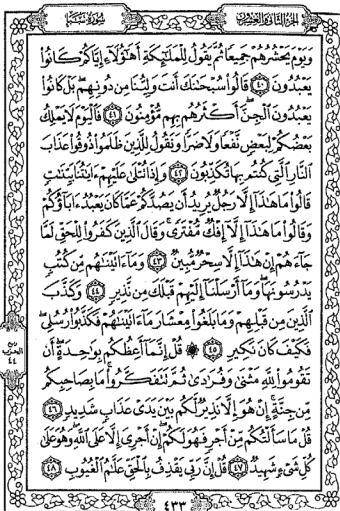 الجزء الثاني والعشرون
سورة سبأ
وَيَوْمَ يَحْشُرُهُمْ جَمِيعًا ثُمَّ يَقُولُ لِلْمَلَٰٓئِكَةِ أَهَٰٓؤُلَآءِ إِيَّاكُمْ كَانُوا۟
يَعْبُدُونَ ٤٠ قَالُوا۟ سُبْحَٰنَكَ أَنتَ وَلِيُّنَا مِن دُونِهِم بَلْ كَانُوا۟
يَعْبُدُونَ ٱلْجِنَّ أَكْثَرُهُم بِهِم مُّؤْمِنُونَ ٤١ فَٱلْيَوْمَ لَا يَمْلِكُ
بَعْضُكُمْ لِبَعْضٍ نَّفْعًا وَلَا ضَرًّا وَنَقُولُ لِلَّذِينَ ظَلَمُوا۟ ذُوقُوا۟ عَذَابَ
ٱلنَّارِ ٱلَّتِى كُنتُم بِهَا تُكَذِّبُونَ ٤٢ وَإِذَا تُتْلَىٰ عَلَيْهِمْ ءَايَٰتُنَا بَيِّنَٰتٍ
قَالُوا۟ مَا هَٰذَآ إِلَّا رَجُلٌ يُرِيدُ أَن يَصُدَّكُمْ عَمَّا كَانَ يَعْبُدُ ءَابَآؤُكُمْ
وَقَالُوا۟ مَا هَٰذَآ إِلَّآ إِفْكٌ مُّفْتَرًى وَقَالَ ٱلَّذِينَ كَفَرُوا۟ لِلْحَقِّ لَمَّا
جَآءَهُمْ إِنْ هَٰذَآ إِلَّا سِحْرٌ مُّبِينٌ ٤٣ وَمَآ ءَاتَيْنَٰهُم مِّن كُتُبٍ
يَدْرُسُونَهَا وَمَآ أَرْسَلْنَآ إِلَيْهِمْ قَبْلَكَ مِن نَّذِيرٍ ٤٤ وَكَذَّبَ
ٱلَّذِينَ مِن قَبْلِهِمْ وَمَا بَلَغُوا۟ مِعْشَارَ مَآ ءَاتَيْنَٰهُمْ فَكَذَّبُوا۟ رُسُلِى
فَكَيْفَ كَانَ نَكِيرِ ٤٥ ۞ قُلْ إِنَّمَآ أَعِظُكُم بِوَٰحِدَةٍ أَن
تَقُومُوا۟ لِلَّهِ مَثْنَىٰ وَفُرَٰدَىٰ ثُمَّ تَتَفَكَّرُوا۟ مَا بِصَاحِبِكُم
مِّن جِنَّةٍ إِنْ هُوَ إِلَّا نَذِيرٌ لَّكُم بَيْنَ يَدَىْ عَذَابٍ شَدِيدٍ ٤٦
قُلْ مَا سَأَلْتُكُم مِّنْ أَجْرٍ فَهُوَ لَكُمْ إِنْ أَجْرِىَ إِلَّا عَلَى ٱللَّهِ وَهُوَ عَلَىٰ
كُلِّ شَىْءٍ شَهِيدٌ ٤٧ قُلْ إِنَّ رَبِّى يَقْذِفُ بِٱلْحَقِّ عَلَّٰمُ ٱلْغُيُوبِ ٤٨
ربع
الحزب
٤٤
٤٣٣